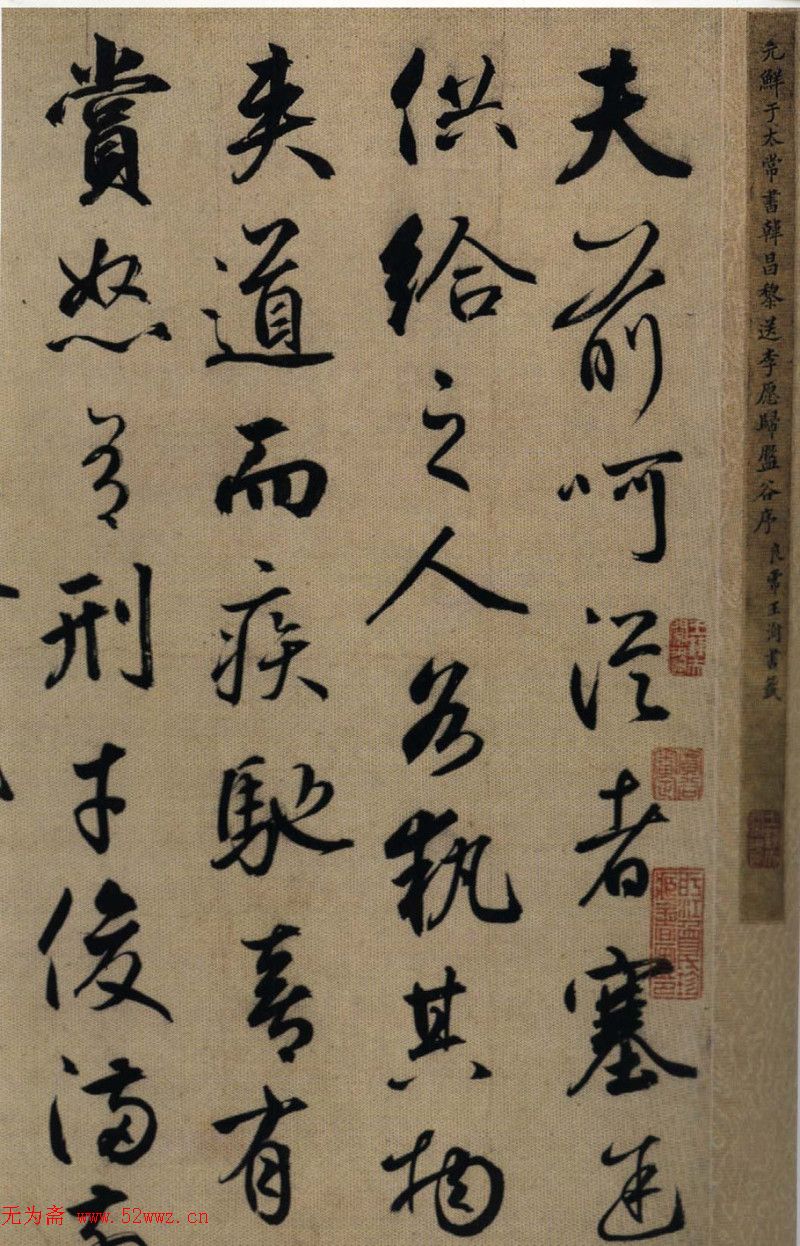 元鮮于太常書韓昌黎送李愿歸盤谷序 良常王澍書籤
夫前呵從者塞途
供給之人各執其物
夾道而疾馳喜有
賞怒有刑才俊滿
无为斋 www.52wwz.cn